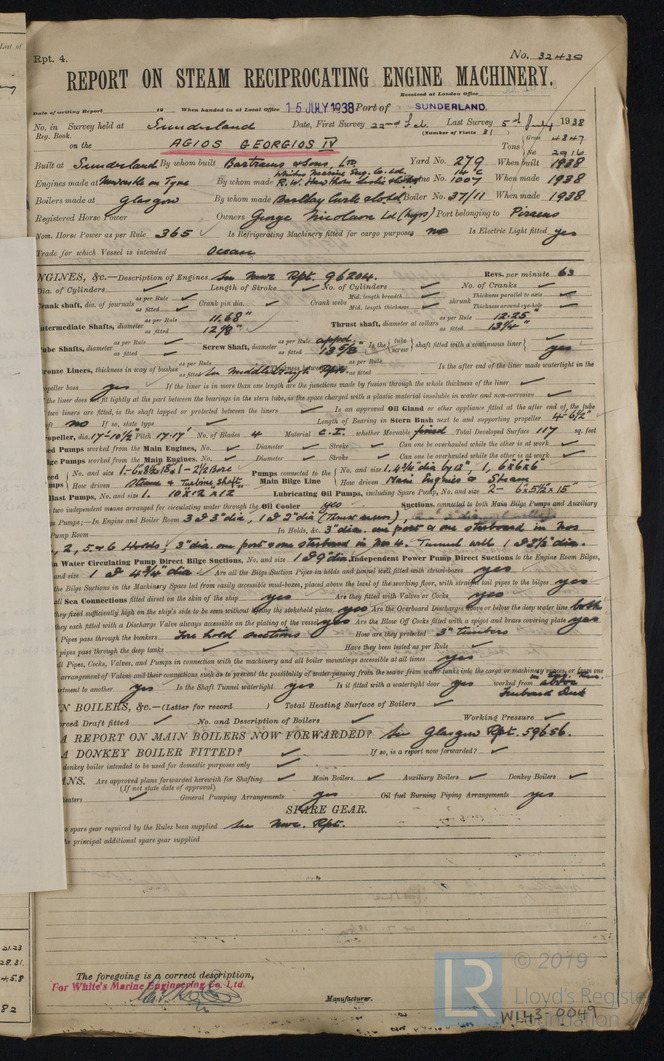 Rpt. 4. No. 32430
REPORT ON STEAM RECIPROCATING ENGINE MACHINERY.
Received at London Office
Date of writing Report 19 When handed in at Local Office 15 JULY 1938 Port of SUNDERLAND.
No. in Survey held at Sunderland Date, First Survey 22nd Feb. Last Survey 5th July 1938
Reg. Book. (Number of Visits 31)
on the AGIOS GEORGIOS IV Tons Gross 4847
Net 2916
Built at Sunderland By whom built Bartrams & Sons, Ltd Yard No. 279 When built 1938
Engines made at Newcastle on Tyne By whom made Whites Marine Eng. Co. Ltd. R.W. Hawthorn Leslie & Co Ltd Engine No. 1007 When made 1938
Boilers made at Glasgow By whom made Boiler No. 37/11 When made 1938
Registered Horse Power Owners George Nicolaou Ltd (Mgrs) Port belonging to Piraeus
Nom. Horse Power as per Rule 365 Is Refrigerating Machinery fitted for cargo purposes no Is Electric Light fitted yes
Trade for which Vessel is intended Ocean
ENGINES, &c.—Description of Engines See Nwc Rpt. 96204. Revs. per minute 63
Dia. of Cylinders Length of Stroke No. of Cylinders No. of Cranks
Crank shaft, dia. of journals as per Rule as fitted Crank pin dia. Crank webs Mid. length breadth Mid. length thickness shrunk Thickness parallel to axis Thickness around eye-hole
Intermediate Shafts, diameter as per Rule 11.68" as fitted 12 7/8" Thrust shaft, diameter at collars as per Rule 12.25" as fitted 13 1/4"
Tube Shafts, diameter as per Rule as fitted Screw Shaft, diameter as per Rule appd. as fitted 13 5/8" Is the tube screw shaft fitted with a continuous liner yes
Bronze Liners, thickness in way of bushes as per Rule as fitted See Middlesbrough Rpt. as per Rule as fitted Is the after end of the liner made watertight in the
propeller boss yes If the liner is in more than one length are the junctions made by fusion through the whole length of the liner
the liner does not fit tightly at the part between the bearings in the stern tube, is the space charged with a plastic material insoluble in water and non-corrosive
two liners are fitted, is the shaft lapped or protected between the liners Is an approved Oil Gland or other appliance fitted at the after end of the tube
no If so, state type Length of Bearing in Stern Bush next to and supporting propeller 4'-6 1/2"
Propeller, dia. 17'-10 1/2" Pitch 17.17' No. of Blades 4 Material C.I. whether Moveable fixed Total Developed Surface 117 sq. feet
Feed Pumps worked from the Main Engines, No. Diameter Stroke Can one be overhauled while the other is at work
Bilge Pumps worked from the Main Engines, No. Diameter Stroke Can one be overhauled while the other is at work
Feed Pumps No. and size How driven Steam & Turbine shaft. Pumps connected to the Main Bilge Line No. and size How driven Main Engines & Steam
Ballast Pumps, No. and size 1. 10" x 12 x 12 Lubricating Oil Pumps, including Spare Pump, No. and size 2- 6 x 5 1/2 x 15
two independent means arranged for circulating water through the Oil Cooler yes Suctions, connected to both Main Bilge Pumps and Auxiliary
Pumps;—In Engine and Boiler Room 3 @ 3" dia., 1 @ 2" dia (Thrust recess)
Pump Room In Holds, &c. 3" dia. one port & one starboard in Nos
1, 2, 5 & 6 Holds; 3" dia. one port & one starboard in No 4. Tunnel well 1 @ 2 1/2" dia.
Main Water Circulating Pump Direct Bilge Suctions, No. and size 1 @ 9" dia. Independent Power Pump Direct Suctions to the Engine Room Bilges,
and size 1 @ 4 3/4" dia Are all the Bilge Suction Pipes in holds and tunnel well fitted with strum-boxes yes
the Bilge Suctions in the Machinery Space led from easily accessible mud-boxes, placed above the level of the working floor, with straight tail pipes to the bilges yes
all Sea Connections fitted direct on the skin of the ship yes Are they fitted with Valves or Cocks yes
they fixed sufficiently high on the ship's side to be seen without lifting the stokehold plates yes Are the Overboard Discharges above or below the deep water line both
they each fitted with a Discharge Valve always accessible on the plating of the vessel yes Are the Blow Off Cocks fitted with a spigot and brass covering plate yes
Pipes pass through the bunkers Fore hold suctions How are they protected 3" timbers
pipes pass through the deep tanks Have they been tested as per Rule
all Pipes, Cocks, Valves, and Pumps in connection with the machinery and all boiler mountings accessible at all times yes
arrangement of Valves and their connections such as to prevent the possibility of water passing from the sea or from water tanks into the cargo or machinery spaces, or from one
compartment to another yes Is the Shaft Tunnel watertight yes Is it fitted with a watertight door yes worked from above
Freeboard Deck
MAIN BOILERS, &c.—(Letter for record ) Total Heating Surface of Boilers
Forced Draft fitted No. and Description of Boilers Working Pressure
IS A REPORT ON MAIN BOILERS NOW FORWARDED? See Glasgow Rpt. 59656.
IS A DONKEY BOILER FITTED? If so, is a report now forwarded?
donkey boiler intended to be used for domestic purposes only
PLANS. Are approved plans forwarded herewith for Shafting Main Boilers Auxiliary Boilers Donkey Boilers
(If not state date of approval)
heaters General Pumping Arrangements yes Oil fuel Burning Piping Arrangements yes
SPARE GEAR.
the spare gear required by the Rules been supplied See Nwc. Rpt.
the principal additional spare gear supplied
21.23
28.31.
45.8
82
The foregoing is a correct description,
For White's Marine Engineering Co. Ltd.
Manufacturer.
LR © 2019
Lloyd's Register
Foundation
W143-0049